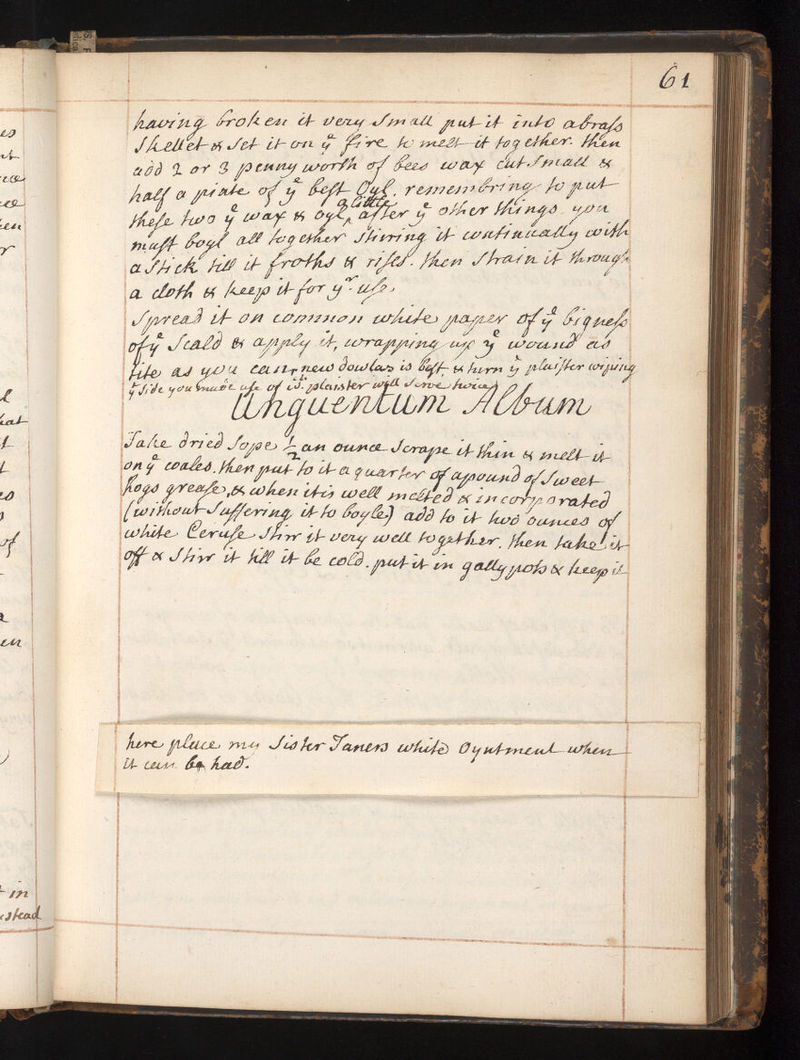 61
having broken it very small put it into a brass
skellet & set it on yᵉ fire to melt it together. then
add 2 or 3 penny worth of bees wax cut small &
half a pinte of yᵉ best Oyl. remembring to put
these two yᵉ wax & oyl ^a little after yᵉ other things. you
must boyl all together stirring it continually with
a stick till it froths & rises. then strain it through
a cloth & keep it for yʳ use.
Spread it on common white paper of yᵉ bigness
of yᵉ Scald & apply it, wrapping up yᵉ wound as
tite as you can, new dowlas is best, & turn yᵉ plaister wiping
yᵉ side you made use of 1st. plaister will serve twice
Unguentum Album
Take dried Sope ½ an ounce scrape it thin & melt it
on yᵉ coales. then put to it a quarter of a pound of sweet
hogs grease, & when it is well melted & incorporated
(without suffering it to boyle) add to it two ounces of
white Ceruse stirr it very well together. then take it
off & stirr it till it be cold. put it in gally pots & keep it
here place my Sister Taners white Oyntment when
it can be had.
es
ee
en
r
l
hat
t
t
es
of
a
en
t in
stead